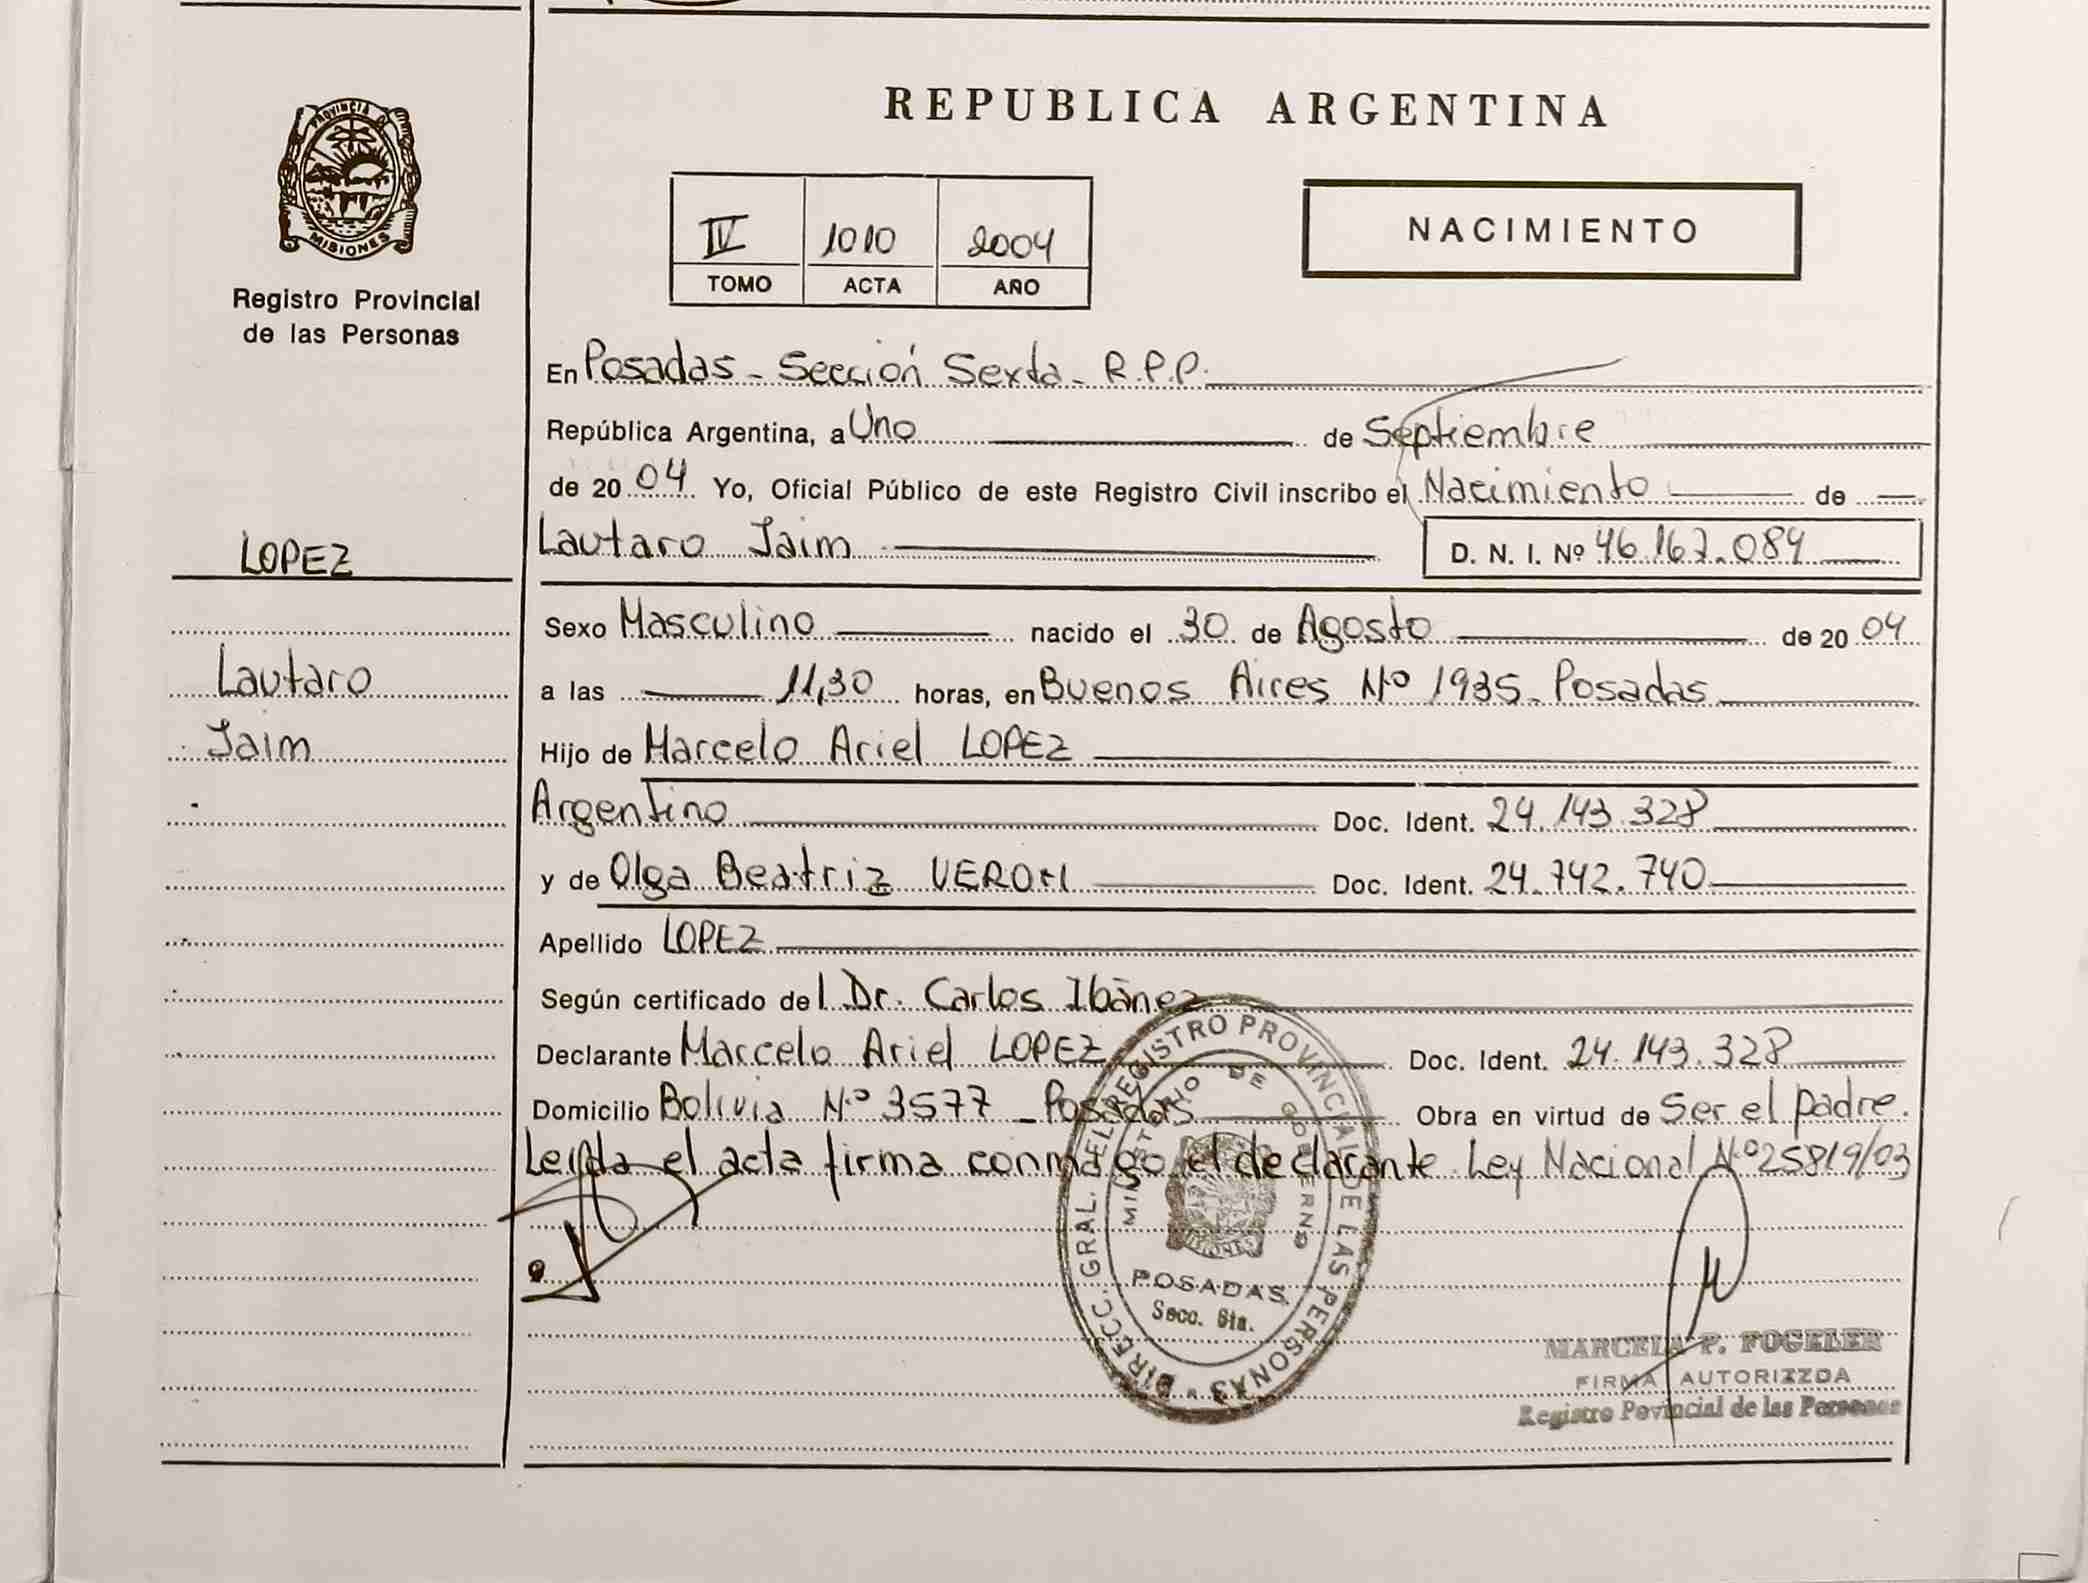 REPUBLICA ARGENTINA
PROVINCIA DE
MISIONES
Registro Provincial
de las Personas
IV 1010 2004
TOMO ACTA AÑO
NACIMIENTO
En Posadas - Sección Sexta - R.P.P.
República Argentina, a Uno de Septiembre
de 2004 Yo, Oficial Público de este Registro Civil inscribo el Nacimiento de
Lautaro Jaim D. N. I. Nº 46.162.084
LOPEZ
Lautaro
Jaim
Sexo Masculino nacido el 30 de Agosto de 2004
a las 11,30 horas, en Buenos Aires Nº 1935. Posadas
Hijo de Marcelo Ariel LOPEZ
Argentino Doc. Ident. 24.143.328
y de Olga Beatriz VERON Doc. Ident. 24.742.740
Apellido LOPEZ
Según certificado del Dr. Carlos Ibáñez
Declarante Marcelo Ariel LOPEZ Doc. Ident. 24.143.328
Domicilio Bolivia Nº 3577 - Posadas Obra en virtud de Ser el padre.
Leída el acta firma conmigo el declarante Ley Nacional Nº 25819/03
DIRECC. GRAL. DEL REGISTRO PROVINCIAL DE LAS PERSONAS
MINISTERIO DE GOBIERNO
MISIONES
POSADAS
Secc. 6ta.
MARCELA P. FOGELER
FIRMA AUTORIZZDA
Registro Povincial de las Personas